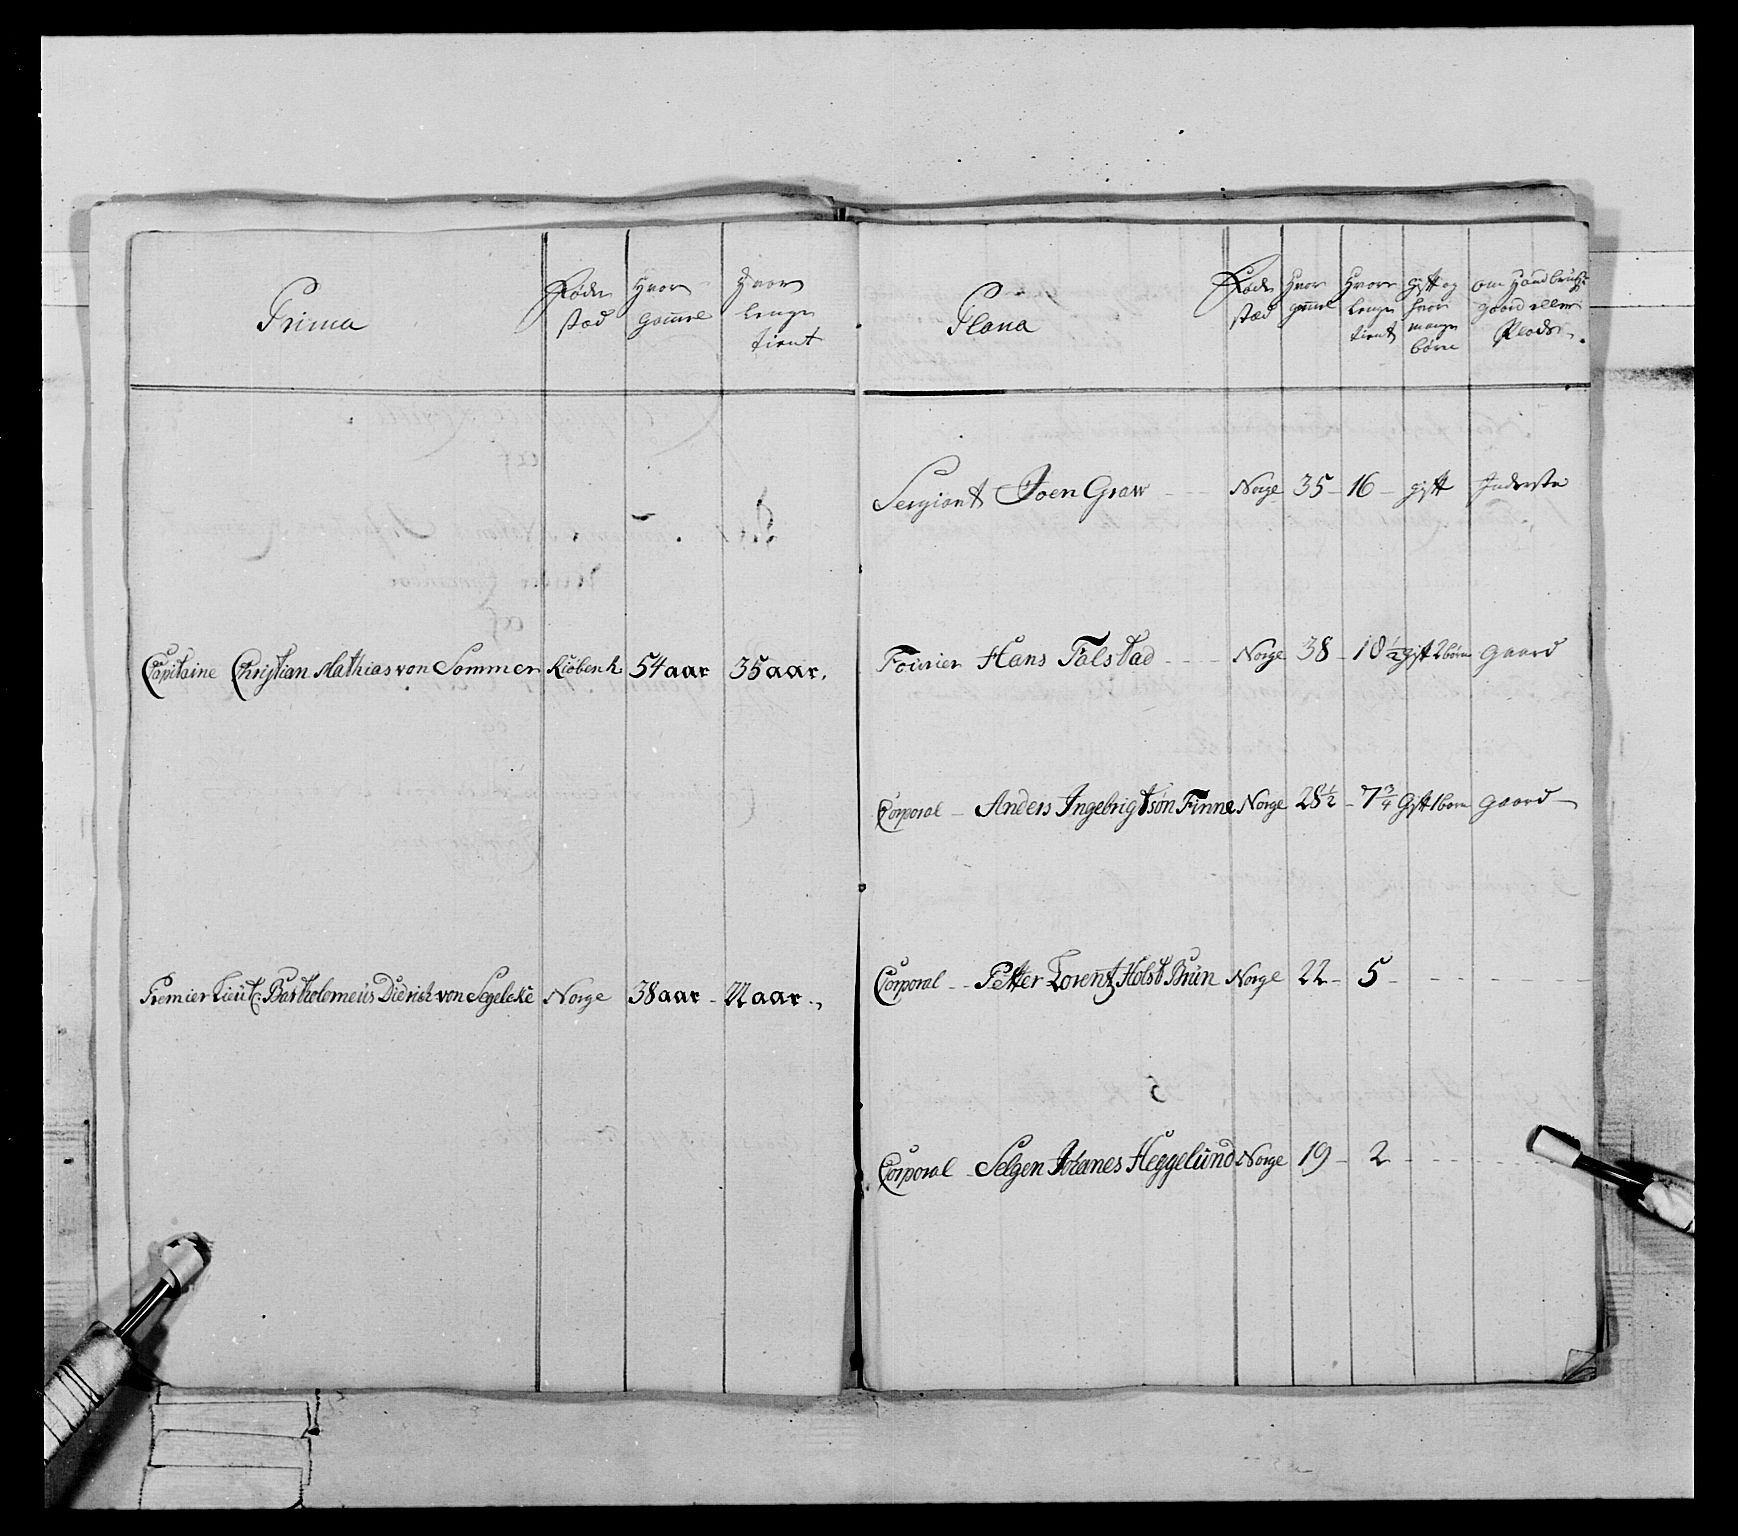 Prima
Føde
stæd
Hvor
gamel
Hvor
lenge
tient
Capitaine Christian Mathias von Sommer Kiöbenh 54 aar 35 aar.
Premier Lieut: Bartholemeus Diderich von Segelcke Norge 38 aar - 22 aar.
Plana
Føde
stæd
Hvor
gamel
Hvor
lenge
tient
gift og
hvor
mange
børn
om Hand bruger
gaard eller
Plads
Sergiant Joen Graw - - Norge 35 - 16 - gift Inderste
Fourier Hans Falstad - - - Norge 38 - 18 1/2 gift 2 børn gaard
Corporal - Anders Ingebrigtsøn Finne Norge 28 1/2 - 7 3/4 Gift 1 barn gaard -
Corporal - - Petter Lorentz Holst Brun Norge 22 - 5 - - - - -
Corporal - Selgen Johanes Heggelund Norge 19 - 2 - - - -